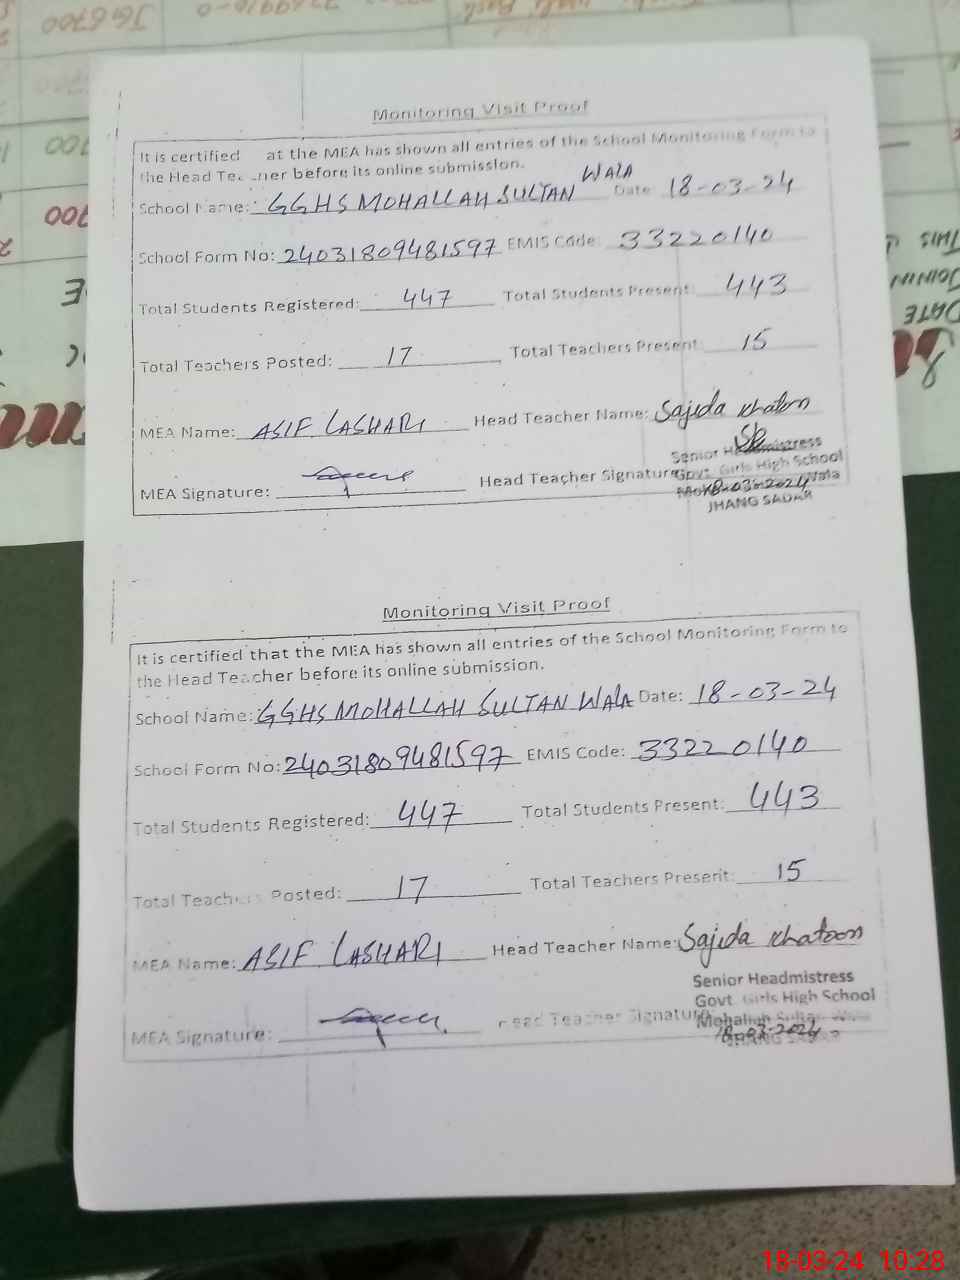 JG6700
Monitoring Visit Proof
It is certified at the MEA has shown all entries of the School Monitoring Form to
the Head Te ner before its online submission.
School Name: GGHS MOHALLAH SULTAN WALA Date 18-03-24
School Form No: 24031809481597 EMIS Code: 33220140
Total Students Registered: 447 Total Students Present: 443
Total Teachers Posted: 17 Total Teachers Present: 15
MEA Name: ASIF LASHARI Head Teacher Name: Sajida Khatoon
MEA Signature: Head Teacher Signature
Senior Headmistress
Govt. Girls High School
18-03-2024 Wala
JHANG SADAR
THIS
JOININ
DATE
Monitoring Visit Proof
It is certified that the MEA has shown all entries of the School Monitoring Form to
the Head Teacher before its online submission.
School Name: GGHS MOHALLAH SULTAN WALA Date: 18-03-24
School Form No: 24031809481597 EMIS Code: 33220140
Total Students Registered: 447 Total Students Present: 443
Total Teachers Posted: 17 Total Teachers Present: 15
MEA Name: ASIF LASHARI Head Teacher Name: Sajida Khatoon
MEA Signature: Head Teacher Signature
Senior Headmistress
Govt. Girls High School
Mohallah Sultan Wala
18-03-2024
JHANG SADAR
18-03-24 10:28